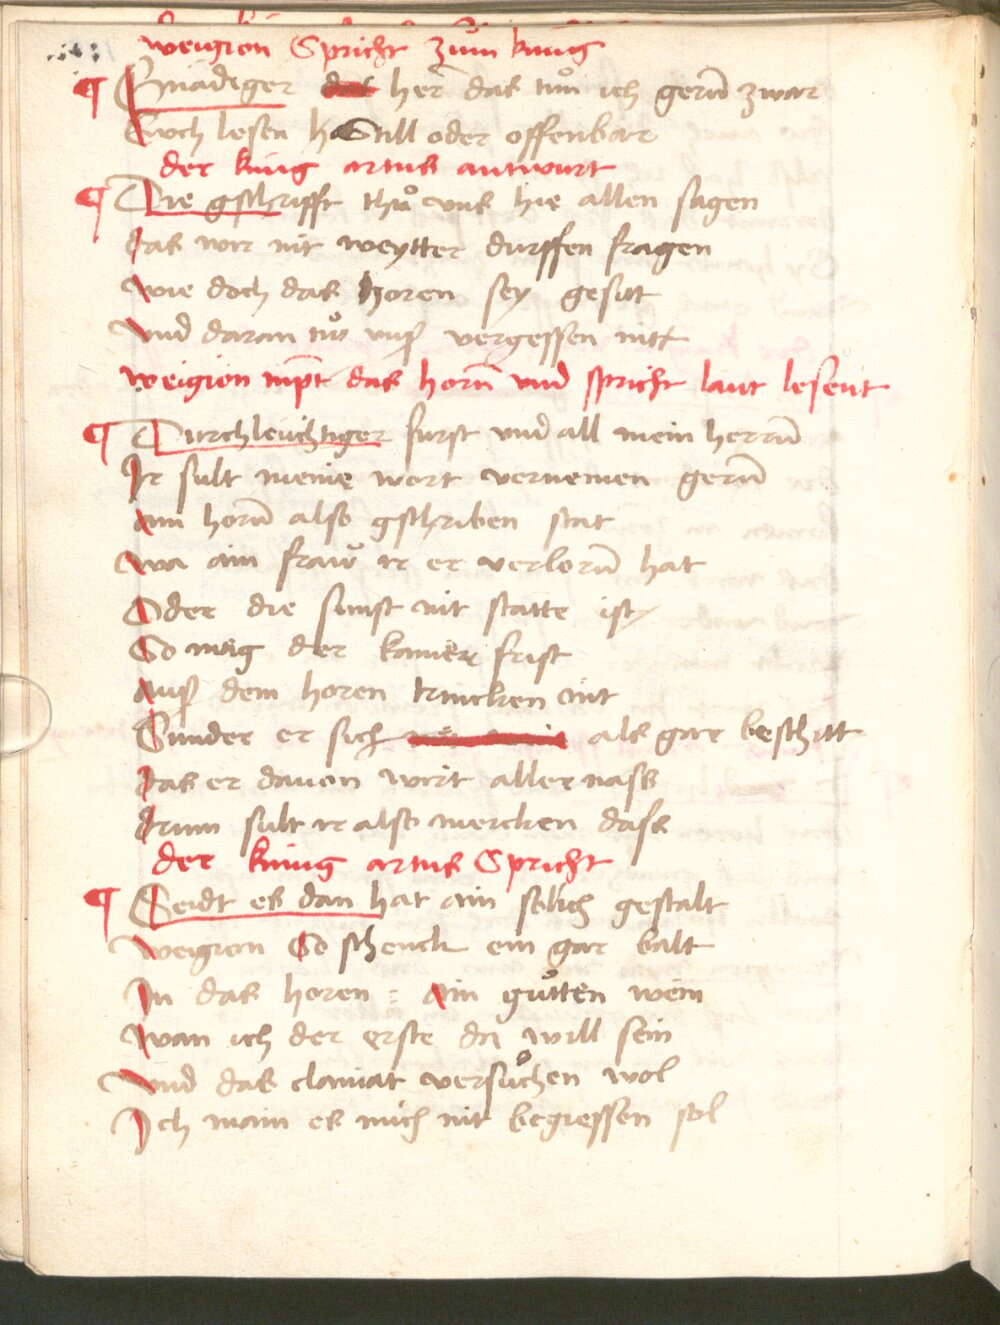 weigion Spricht zům king
¶ Gnädeger das her̄ das tůn ich gerñ zwar
Euch lesen Still oder offenbar
der king artus antwurt
¶ Die gschrifft thů uns hie allen sagen
das wir nit weytter durffen fragen
wie doch das horen sey gesitt
und daran tů nuß vergessen nitt
weigion nĩpt das horñ und spricht laut lesent
¶ Durchleuchtiger furst und all mein herrñ
Ir sult meine wort vernemen gerñ
am horñ also gschriben stat
wa ain fraw ir er verlorñ hat
Oder die sunst nit statte ist
So mag der kainer frist
auß dem horen trincken nit
Sunder er sich als gar beschitt
das er davon wirt aller nass
drum sult ir also mercken dass
der king artus Spricht
¶ Seidt es dan hat ain solich gestalt
weigion So schenck ein gar balt
In das horen = ain gůtten wein
wan ich der erste dr̄ will sein
und das clainat versůchen wol
Ich main es mich nit begiessen sol